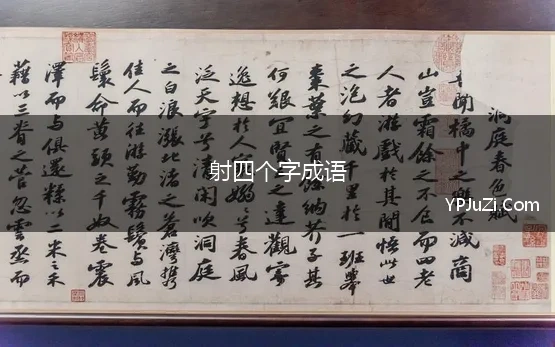 洞庭春色賦
聞橘中之樂不減商
山豈霜餘之不食而四老
人者游戲於其間悟此世
之泡幻藏千里於一班舉
棗葉之有餘納芥子其
何艱宜賢王之達觀寄
逸想於人寰嫋嫋兮春風
泛天宇兮清閑吹洞庭
之白浪漲北渚之蒼灣攜
佳人而往游勒霧鬢與風
鬟命黃頭之千奴卷震
澤而與俱還糅以二米之禾
藉以三脊之菅忽雲烝而
射四个字成语
YPJuZi.Com